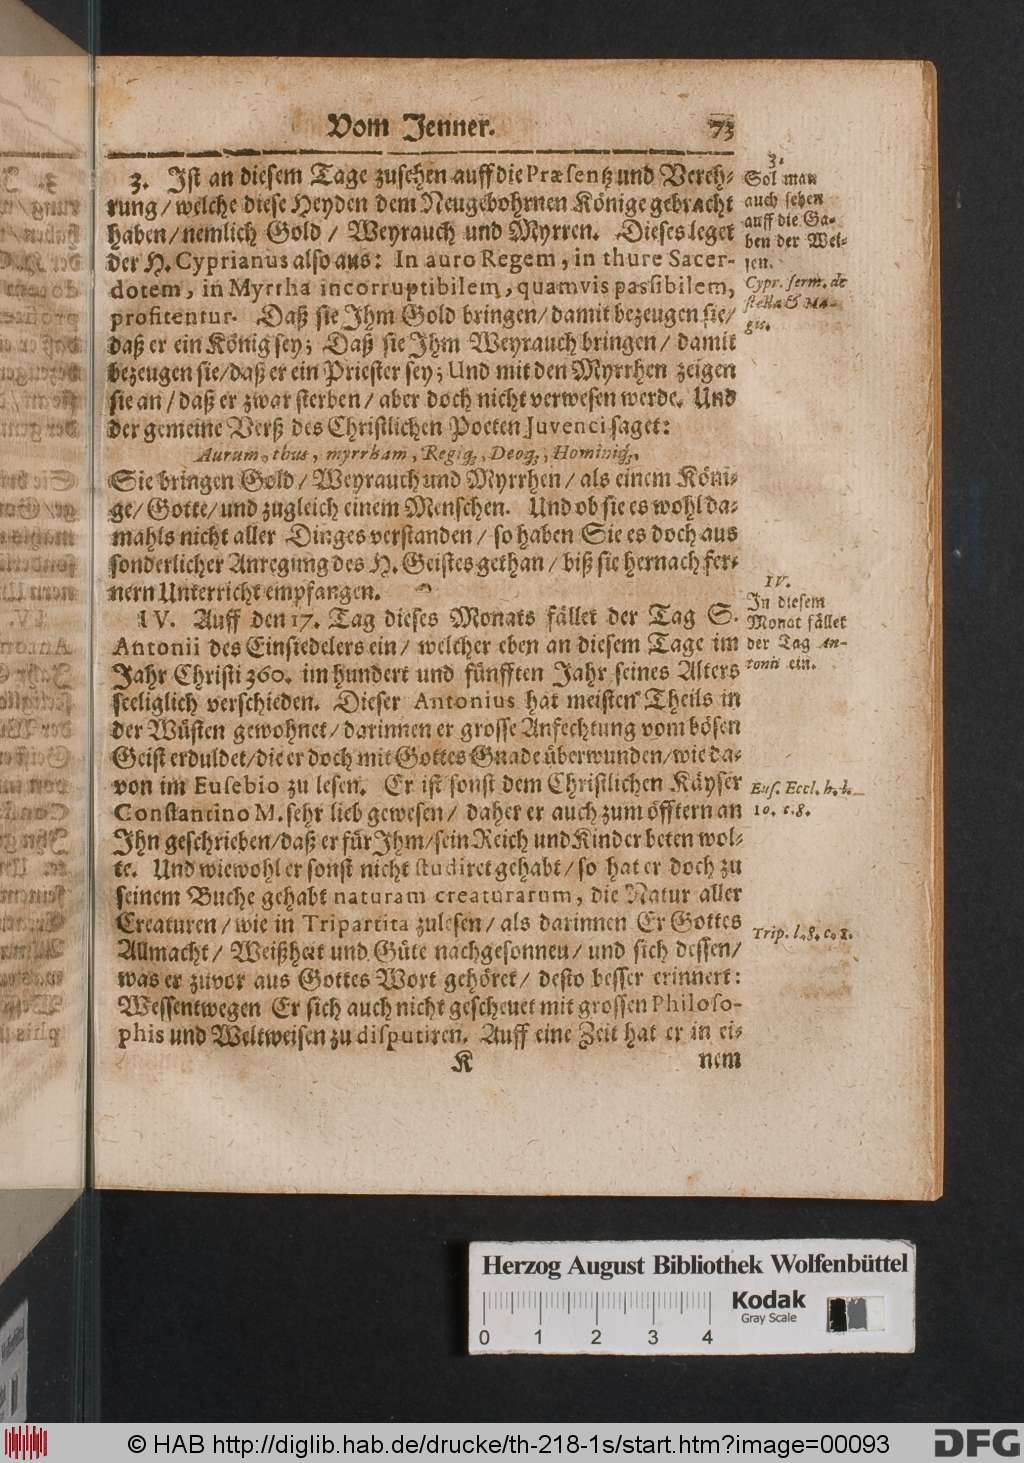 Vom Jenner. 73
3. Ist an diesem Tage zusehen auff die Præsentz und Vereh-
rung/ welche diese Heyden dem Neugebohrnen Könige gebracht
haben/ nemlich Gold/ Weyrauch und Myrren. Dieses leget
der H. Cyprianus also aus: In auro Regem, in thure Sacer-
dotem, in Myrrha incorruptibilem, quamvis passibilem,
profitentur. Daß sie Ihm Gold bringen/ damit bezeugen sie/
daß er ein König sey; Daß sie Ihm Weyrauch bringen/ damit
bezeugen sie/ daß er ein Priester sey; Und mit den Myrrhen zeigen
sie an/ daß er zwar sterben/ aber doch nicht verwesen werde. Und
der gemeine Verß des Christlichen Poeten Juvenci saget:
Aurum, thus, myrrham, Regiq;, Deoq;, Hominiq;,
Sie bringen Gold/ Weyrauch und Myrrhen/ als einem Köni-
ge/ Gotte/ und zugleich einem Menschen. Und ob sie es wohl da-
mahls nicht aller Dinges verstanden/ so haben Sie es doch aus
sonderlicher Anregung des H. Geistes gethan/ biß sie hernach fer-
nern Unterricht empfangen.
IV. Auff den 17. Tag dieses Monats fället der Tag S.
Antonii des Einsiedelers ein/ welcher eben an diesem Tage im
Jahr Christi 360. im hundert und fünfften Jahr seines Alters
seeliglich verschieden. Dieser Antonius hat meisten Theils in
der Wüsten gewohnet/ darinnen er grosse Anfechtung vom bösen
Geist erduldet/ die er doch mit Gottes Gnade überwunden/ wie da-
von im Eusebio zu lesen. Er ist sonst dem Christlichen Käyser
Constantino M. sehr lieb gewesen/ daher er auch zum öfftern an
Ihn geschrieben/ daß er für Ihm/ sein Reich und Kinder beten wol-
te. Und wiewohl er sonst nicht studiret gehabt/ so hat er doch zu
seinem Buche gehabt naturam creaturarum, die Natur aller
Creaturen/ wie in Tripartita zulesen/ als darinnen Er Gottes
Allmacht/ Weißheit und Güte nachgesonnen/ und sich dessen/
was er zuvor aus Gottes Wort gehöret/ desto besser erinnert:
Wessentwegen Er sich auch nicht gescheuet mit grossen Philoso-
phis und Weltweisen zu disputiren. Auff eine Zeit hat er in ei-
K nem
3.
Sol man
auch sehen
auff die Ga-
ben der Wei-
sen.
Cypr. serm. de
stella & Ma-
gis.
IV.
In diesem
Monat fället
der Tag An-
tonii ein.
Eus. Eccl. h. l.
10. c. 8.
Trip. l. 8. c. 1.
Herzog August Bibliothek Wolfenbüttel
0 1 2 3 4
Kodak
Gray Scale
© HAB http://diglib.hab.de/drucke/th-218-1s/start.htm?image=00093
DFG